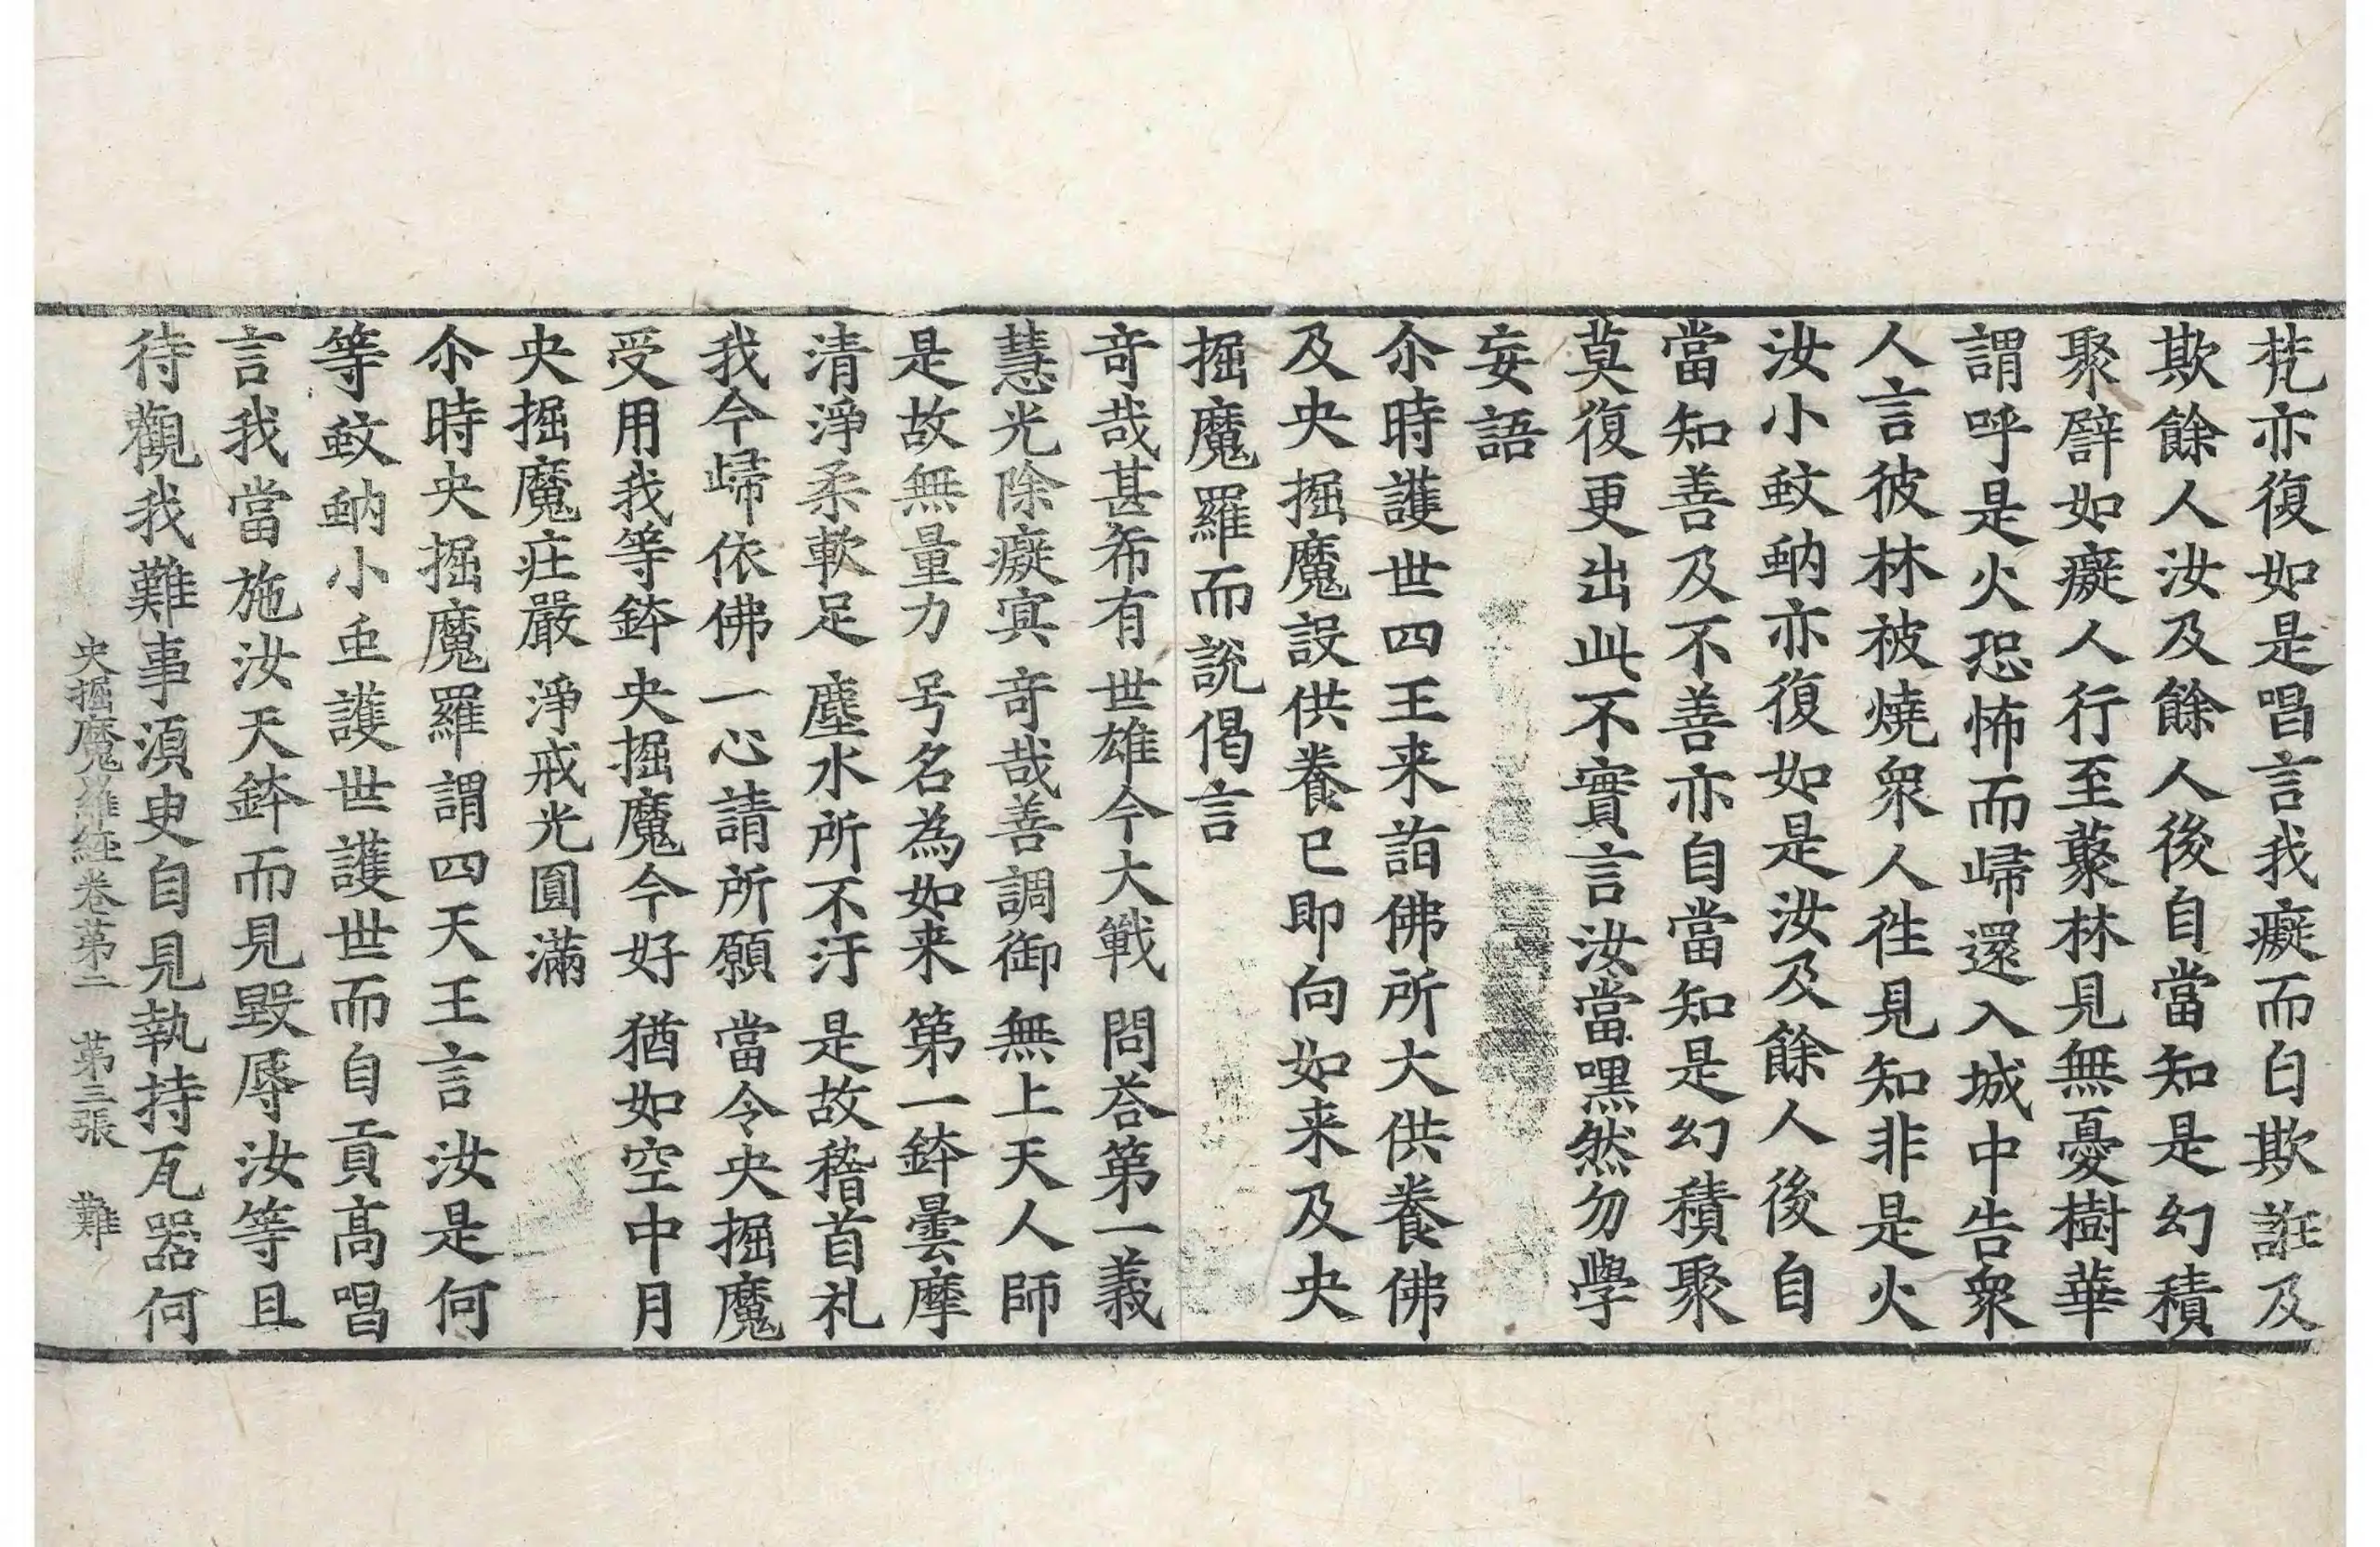 梵亦復如是唱言我癡而自欺誑及
欺餘人汝及餘人後自當知是幻積
聚譬如癡人行至藂林見無憂樹華
謂呼是火恐怖而歸還入城中告衆
人言彼林被燒衆人徃見知非是火
汝小蚊蚋亦復如是汝及餘人後自
當知善及不善亦自當知是幻積聚
莫復更出此不實言汝當嘿然勿學
妄語
尒時護世四王来詣佛所大供養佛
及央掘魔設供養已即向如来及央
掘魔羅而說偈言
竒哉甚希有 世雄今大戰 問荅第一義
慧光除癡㝠 竒哉善調御 無上天人師
是故無量力 号名為如来 第一鉢曇摩
清淨柔軟足 塵水所不汙 是故稽首礼
我今歸依佛 一心請所願 當令央掘魔
受用我等鉢 央掘魔今好 猶如空中月
央掘魔庄嚴 淨戒光圓滿
尒時央掘魔羅謂四天王言汝是何
等蚊蚋小䖝護世護世而自貢髙唱
言我當施汝天鉢而見毀辱汝等且
待觀我難事湏臾自見執持瓦器何
央掘魔羅経卷第二 第三張 難